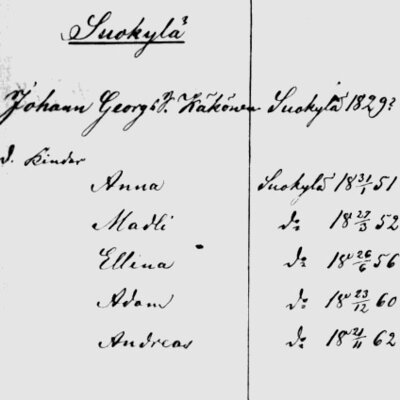 Suokylä
Johann Georgs S. Käkönen Suokylä 1829?
d. Kinder
Anna Suokylä 18 31/1 51
Madli do 18 27/3 52
Ellina do 18 26/6 56
Adam do 18 23/12 60
Andreas do 18 21/11 62